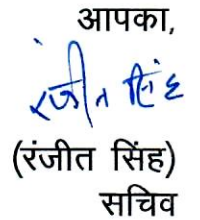 आपका,
रंजीत सिंह
(रंजीत सिंह)
सचिव